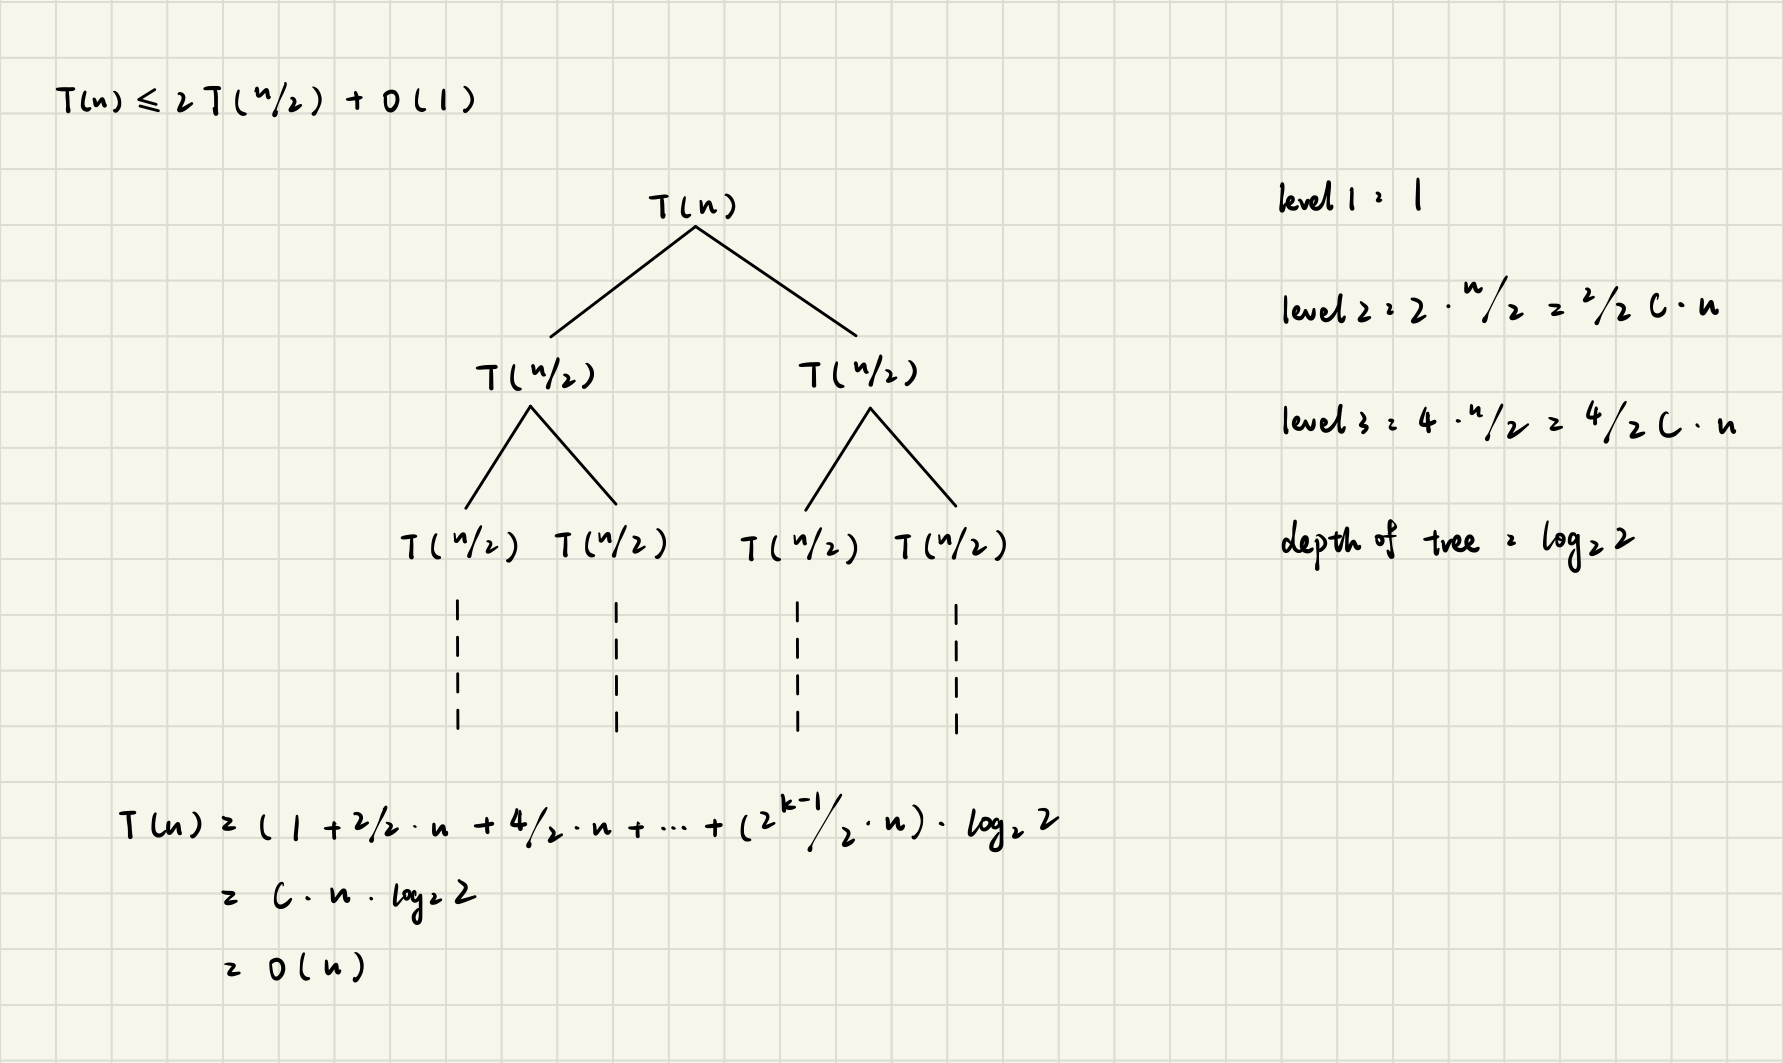 T(n) ≤ 2 T(n/2) + O(1)
T(n)
T(n/2) T(n/2)
T(n/2) T(n/2) T(n/2) T(n/2)
level 1 = 1
level 2 = 2 · n/2 = 2/2 C · n
level 3 = 4 · n/2 = 4/2 C · n
depth of tree = log₂ 2
T(n) = (1 + 2/2 · n + 4/2 · n + ... + (2^{k-1}/2 · n) · log₂ 2
= C · n · log₂ 2
= O(n)